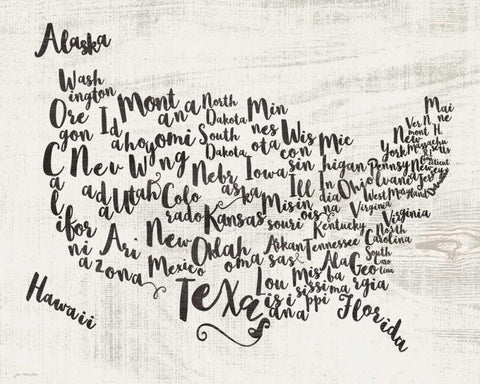 Alaska
Wash
ington
Ore
gon
Cali
for
ni
a
Nev
ad
a
Id
aho
Mont
ana
Wy
omi
ng
Utah
Colo
rado
Ari
zona
New
Mexico
North
Dakota
South
Dakota
Nebr
aska
Kansas
Oklah
oma
Texas
Min
nes
ota
Iowa
Mis
souri
Arkan
sas
Lou
isi
ana
Wis
con
sin
Ill
in
ois
Mic
higan
In
dia
na
Ohio
Kentucky
Tennessee
Mis
sissi
ppi
Ala
ba
ma
Geo
rgia
Florida
South
Caro
lina
North
Carolina
Virginia
West
Virginia
Maryland
Pennsy
lvania
New
Jersey
New
York
Ver
mont
N.
H.
Mai
ne
Massachu
setts
Hawaii